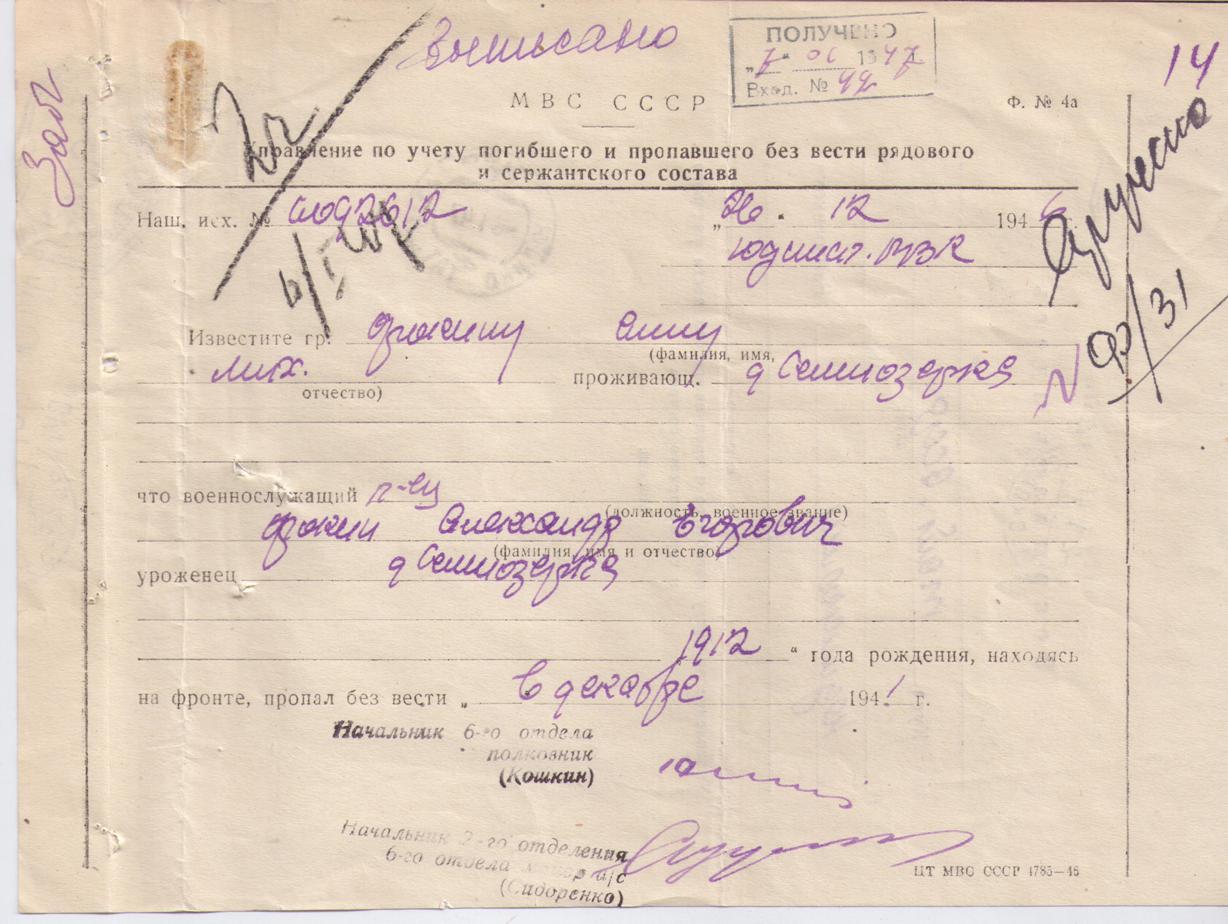 Выписано
ПОЛУЧЕНО
„7“ 01 1947
Вход. № 42
14
МВС СССР
Ф. № 4а
Управление по учету погибшего и пропавшего без вести рядового
и сержантского состава
Наш. исх. №
„26. 12 1946
Вручено
6/I 47
93/31
Известите гр. Фокину Анну
(фамилия, имя,
Мих. проживающ. д Семиозерка
отчество)
что военнослужащий р-ец
(должность, военное звание)
Фокин Александр Егорович
(фамилия, имя и отчество)
уроженец д Семиозерка
1912 “ года рождения, находясь
на фронте, пропал без вести „ в декабре 1941 г.
Начальник 6-го отдела
полковник
(Кошкин)
Начальник 2-го отделения
6-го отдела майор а/с
(Сидоренко)
ЦТ МВС СССР 4785—46